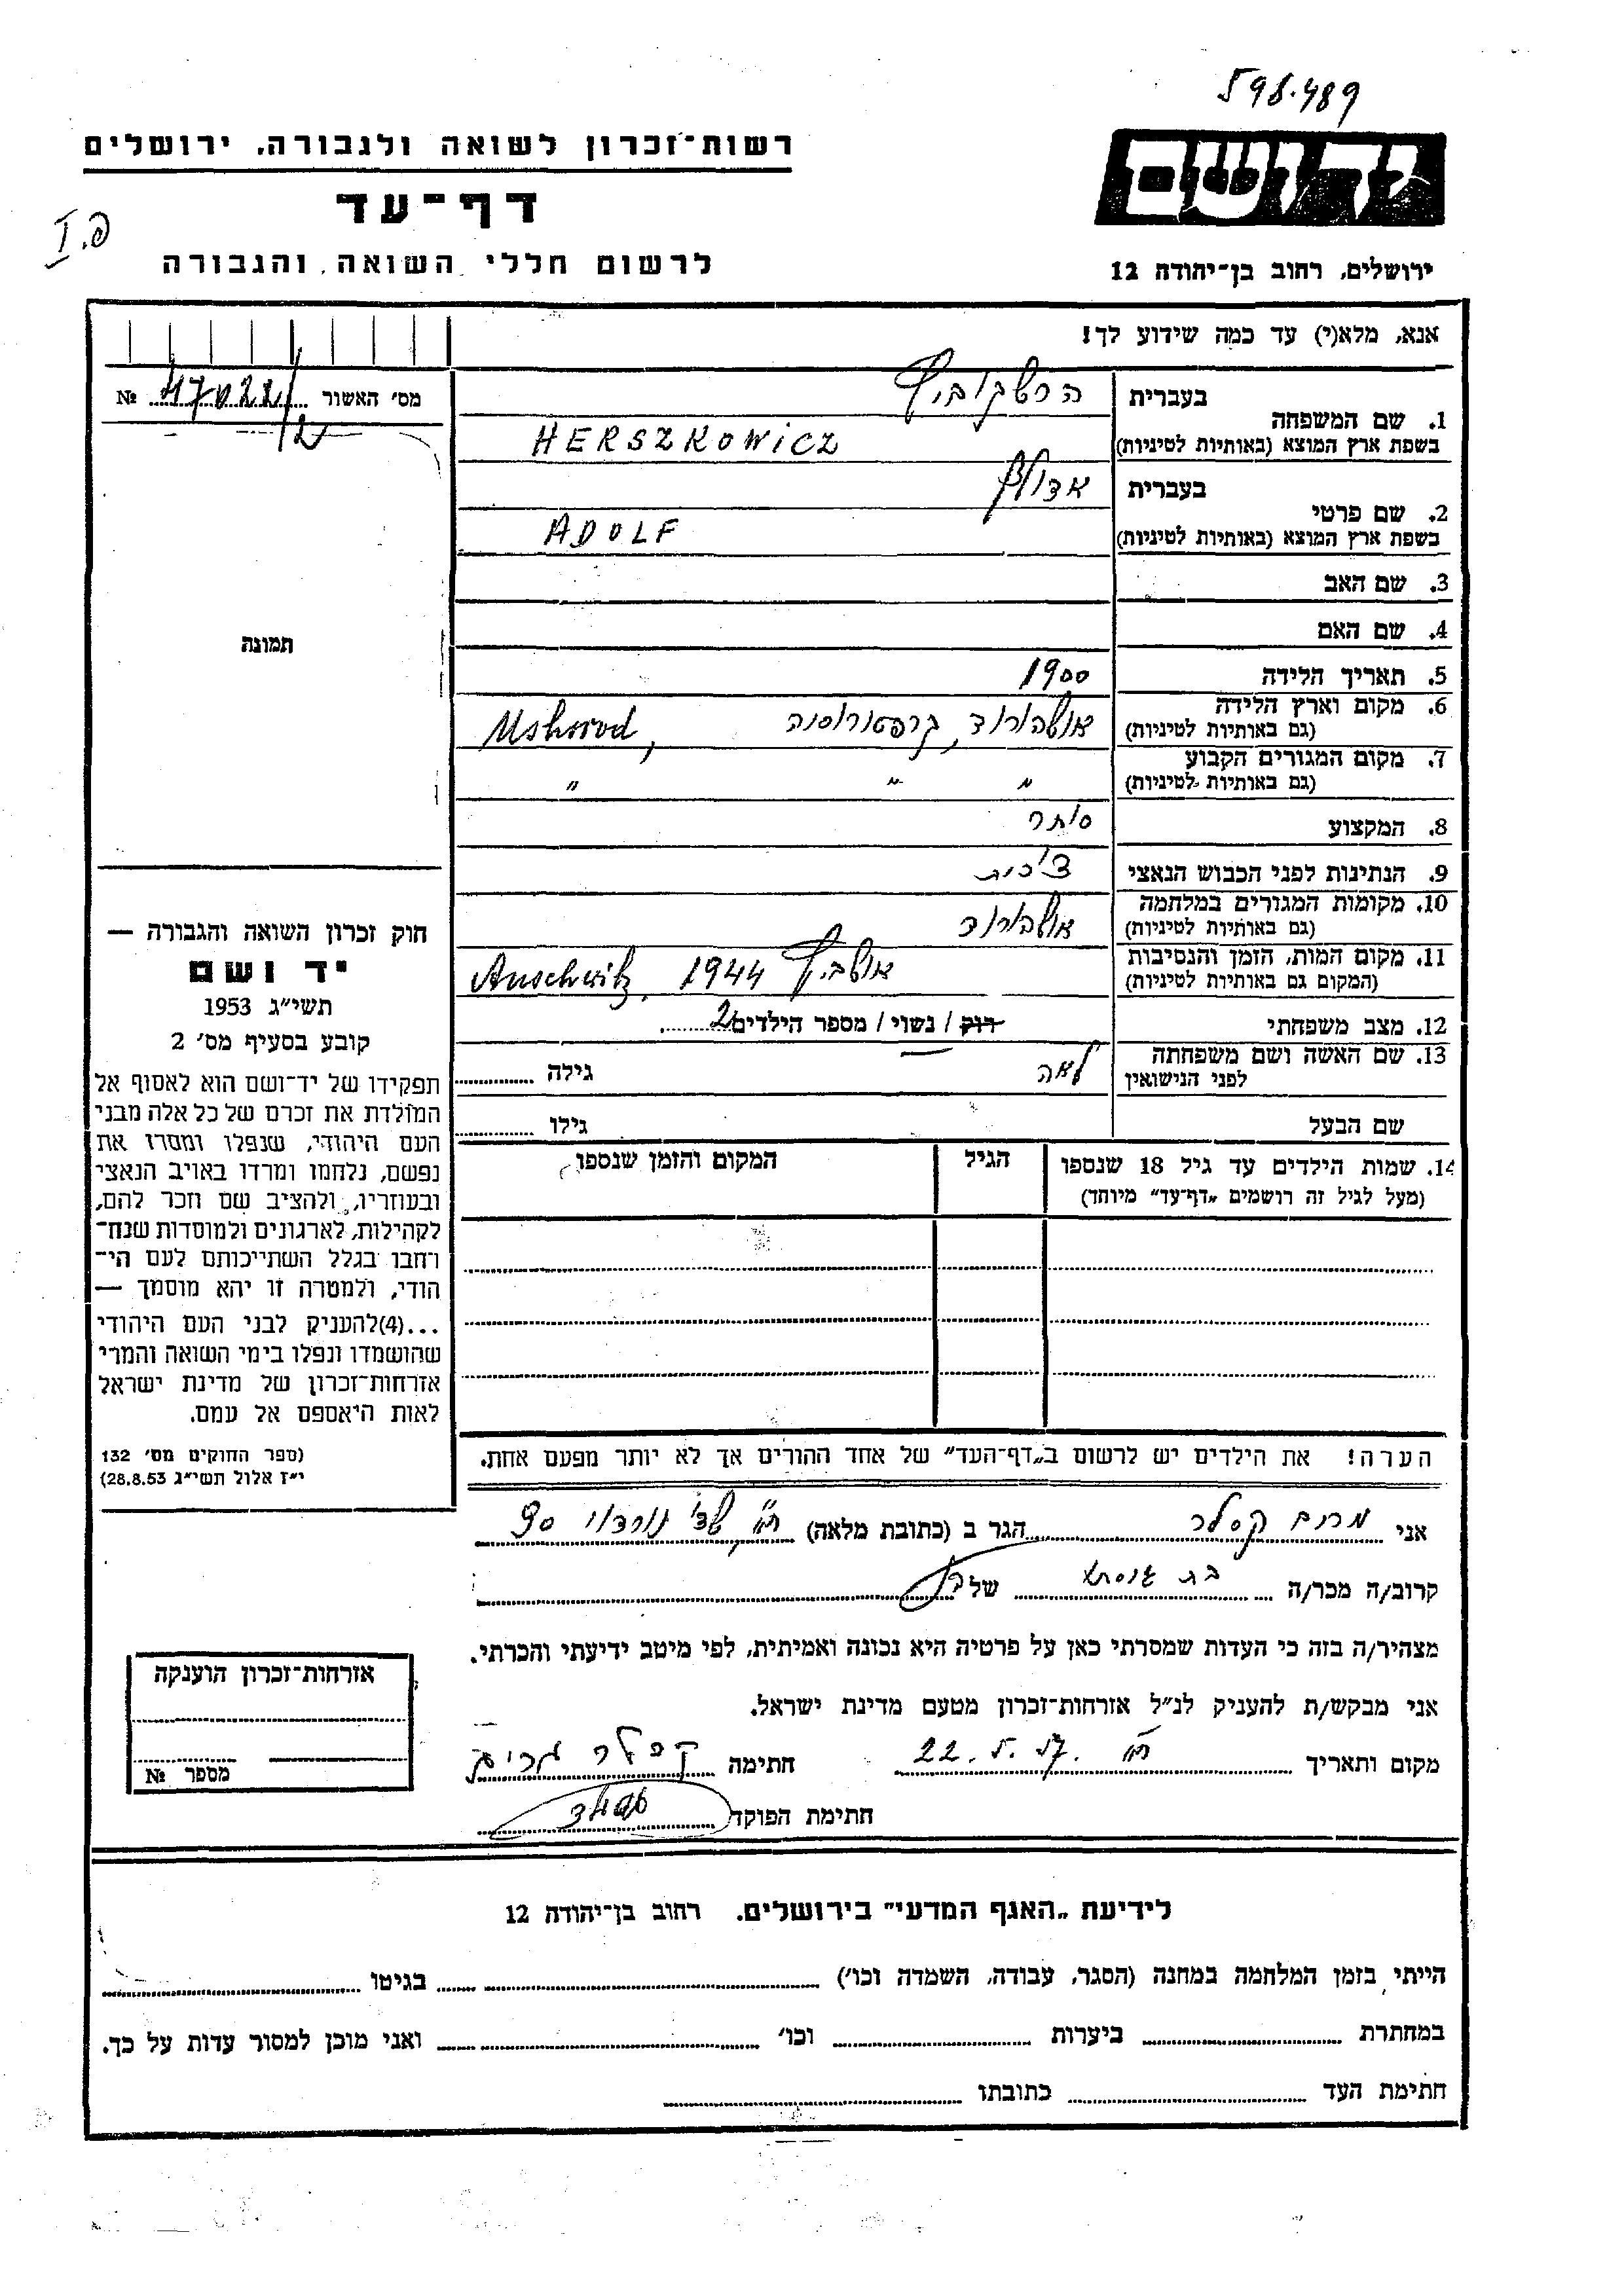 598.489
רשות־זכרון לשואה ולגבורה, ירושלים
יד ושם
דף־עד
לרשום חללי השואה והגבורה
ירושלים, רחוב בן־יהודה 12
אנא, מלא(י) עד כמה שידוע לך!
מס׳ האשור № 47022/2
1. שם המשפחה בעברית הרשקוביץ
בשפת ארץ המוצא (באותיות לטיניות) HERSZKOWICZ
2. שם פרטי בעברית אדולף
בשפת ארץ המוצא (באותיות לטיניות) ADOLF
3. שם האב
4. שם האם
תמונה
5. תאריך הלידה 1900
6. מקום וארץ הלידה (גם באותיות לטיניות) אושהורוד, קרפטורוסיה Ushorod,
7. מקום המגורים הקבוע (גם באותיות לטיניות) " " "
8. המקצוע סוחר
9. הנתינות לפני הכבוש הנאצי צ'כית
10. מקומות המגורים במלחמה (גם באותיות לטיניות) אושהורוד
11. מקום המות, הזמן והנסיבות (המקום גם באותיות לטיניות) אושביץ 1944 Auschwitz,
12. מצב משפחתי רוק / נשוי / מספר הילדים 2
13. שם האשה ושם משפחתה לפני הנישואין לאה גילה
שם הבעל גילו
14. שמות הילדים עד גיל 18 שנספו הגיל המקום והזמן שנספו
(מעל לגיל זה רושמים „דף־עד" מיוחד)
חוק זכרון השואה והגבורה —
יד ושם
תשי״ג 1953
קובע בסעיף מס׳ 2
תפקידו של יד־ושם הוא לאסוף אל
המולדת את זכרם של כל אלה מבני
העם היהודי, שנפלו ומסרו את
נפשם, נלחמו ומרדו באויב הנאצי
ובעוזריו, ולהציב שם וזכר להם,
לקהילות, לארגונים ולמוסדות שנח־
רחבו בגלל השתייכותם לעם הי־
הודי, ולמטרה זו יהא מוסמך —
...(4)להעניק לבני העם היהודי
שהושמדו ונפלו בימי השואה והמרי
אזרחות־זכרון של מדינת ישראל
לאות היאספם אל עמם.
(ספר החוקים מס׳ 132
י״ז אלול תשי״ג 28.8.53)
הערה! את הילדים יש לרשום ב„דף־העד" של אחד ההורים אך לא יותר מפעם אחת.
אני מרים קסלר הגר ב (כתובת מלאה) ת"א שד' נורדוי 90
קרוב/ה מכר/ה של
מצהיר/ה בזה כי העדות שמסרתי כאן על פרטיה היא נכונה ואמיתית, לפי מיטב ידיעתי והכרתי.
אני מבקש/ת להעניק לנ״ל אזרחות־זכרון מטעם מדינת ישראל.
מקום ותאריך ת"א 22.5.57 חתימה קסלר מרים
חתימת הפוקד
אזרחות־זכרון הוענקה
מספר №
לידיעת „האגף המדעי" בירושלים. רחוב בן־יהודה 12
הייתי בזמן המלחמה במחנה (הסגר, עבודה, השמדה וכו׳) בגיטו
במחתרת ביערות וכו׳ ואני מוכן למסור עדות על כך.
חתימת העד כתובתו